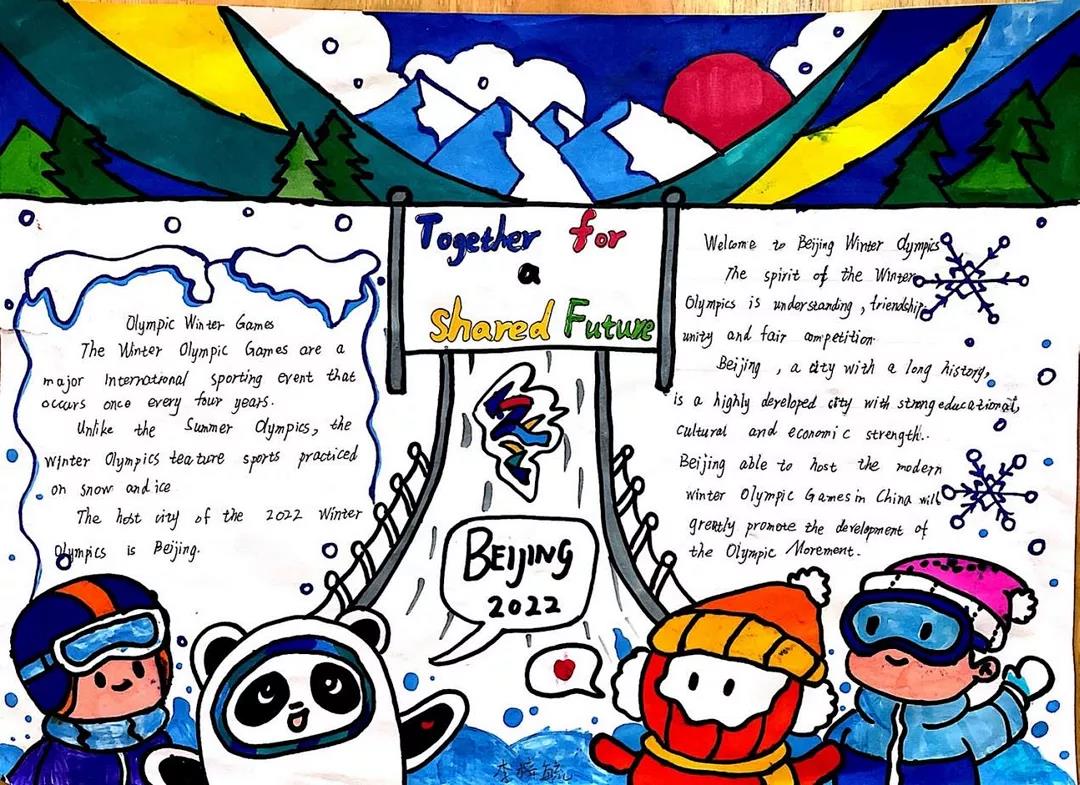 Together for
a
shared Future
Olympic Winter Games
The Winter Olympic Games are a
major International sporting event that
occurs once every four years.
Unlike the Summer Olympics, the
Winter Olympics teature sports practiced
on snow and ice
The host city of the 2022 Winter
Olympics is Beijing.
Welcome to Beijing Winter Olympics
The spirit of the Winter
Olympics is understanding, friendship,
unity and fair competition.
Beijing, a city with a long history,
is a highly developed city with strong educational,
cultural and economic strength.
Beijing able to host the modern
winter Olympic Games in China will
greatly promote the development of
the Olympic Morement.
BEIJING
2022
李